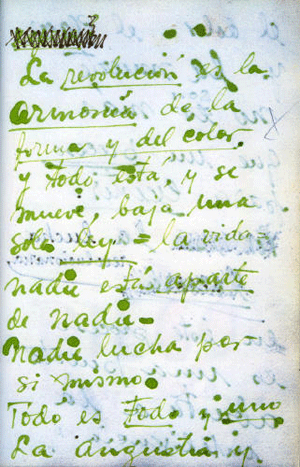 La revolución es la
armonía de la
forma y del color
y todo está, y se
mueve, bajo una
sola ley = la vida =
nadie está aparte
de nadie –
Nadie lucha por
si mismo.
Todo es todo y uno
La angustia y